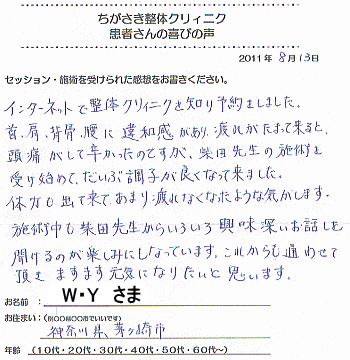 ちがさき整体クリィニク
患者さんの喜びの声
2011年 8月 13日
セッション・施術を受けられた感想をお書きください。
インターネットで整体クリィニクを知り予約をしました。
首、肩、背骨、腰に違和感があり、疲れがたまって来ると、
頭痛がして辛かったのですが、柴田先生の施術を
受け始めて、だいぶ調子が良くなって来ました。
体力も出て来て、あまり疲れなくなったような気がします。
施術中も柴田先生からいろいろ興味深いお話しを
聞けるのが楽しみにもなっています。これからも通わせて
頂き ますます元気になりたいと思います。
お名前: W・Y さま
お住まい:(例〇〇M〇〇市でいいです)
神奈川県、茅ヶ崎市
年齢 (10代・20代・30代・40代・50代・60代~)